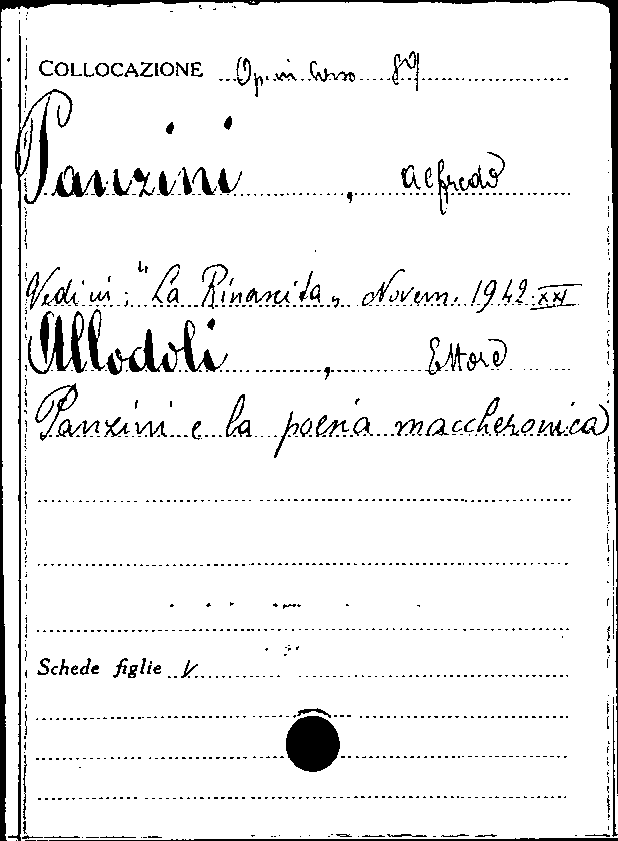 COLLOCAZIONE Op. in Corso 89
Panzini, Alfredo
Vedi in: "La Rinascita„ Novem. 1942. XXI
Allodoli, Ettore
Panzini e la poesia maccheronica
Schede figlie V